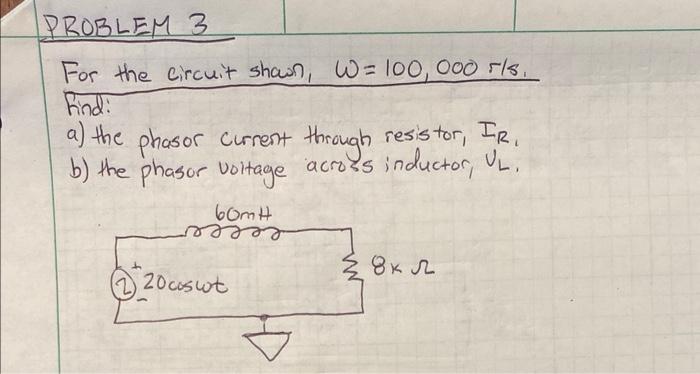 PROBLEM 3
For the circuit shown, ω = 100,000 r/s.
Find:
a) the phasor current through resistor, IR.
b) the phasor voltage across inductor, VL.
60mH
+
20cosωt
-
8k Ω